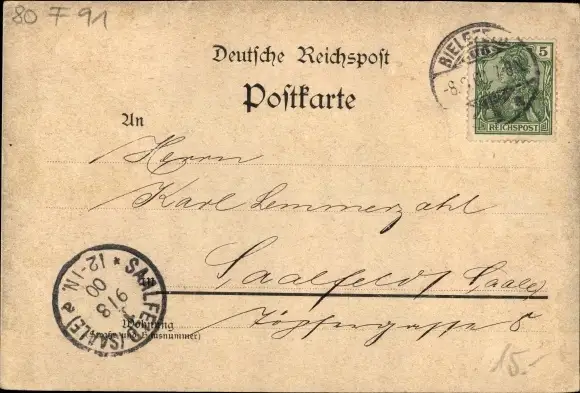 80 F 91
Deutsche Reichspost
Postkarte
5
REICHSPOST
BIELEFELD
-8.
An
Herrn
Karl Lemmerzahl
Saalfeld Saale
in
Wohnung
(Straße und Hausnummer)
Töpfergasse 8
* SAALFELD (SAALE) a
12-1N.
9 8
00
15.-